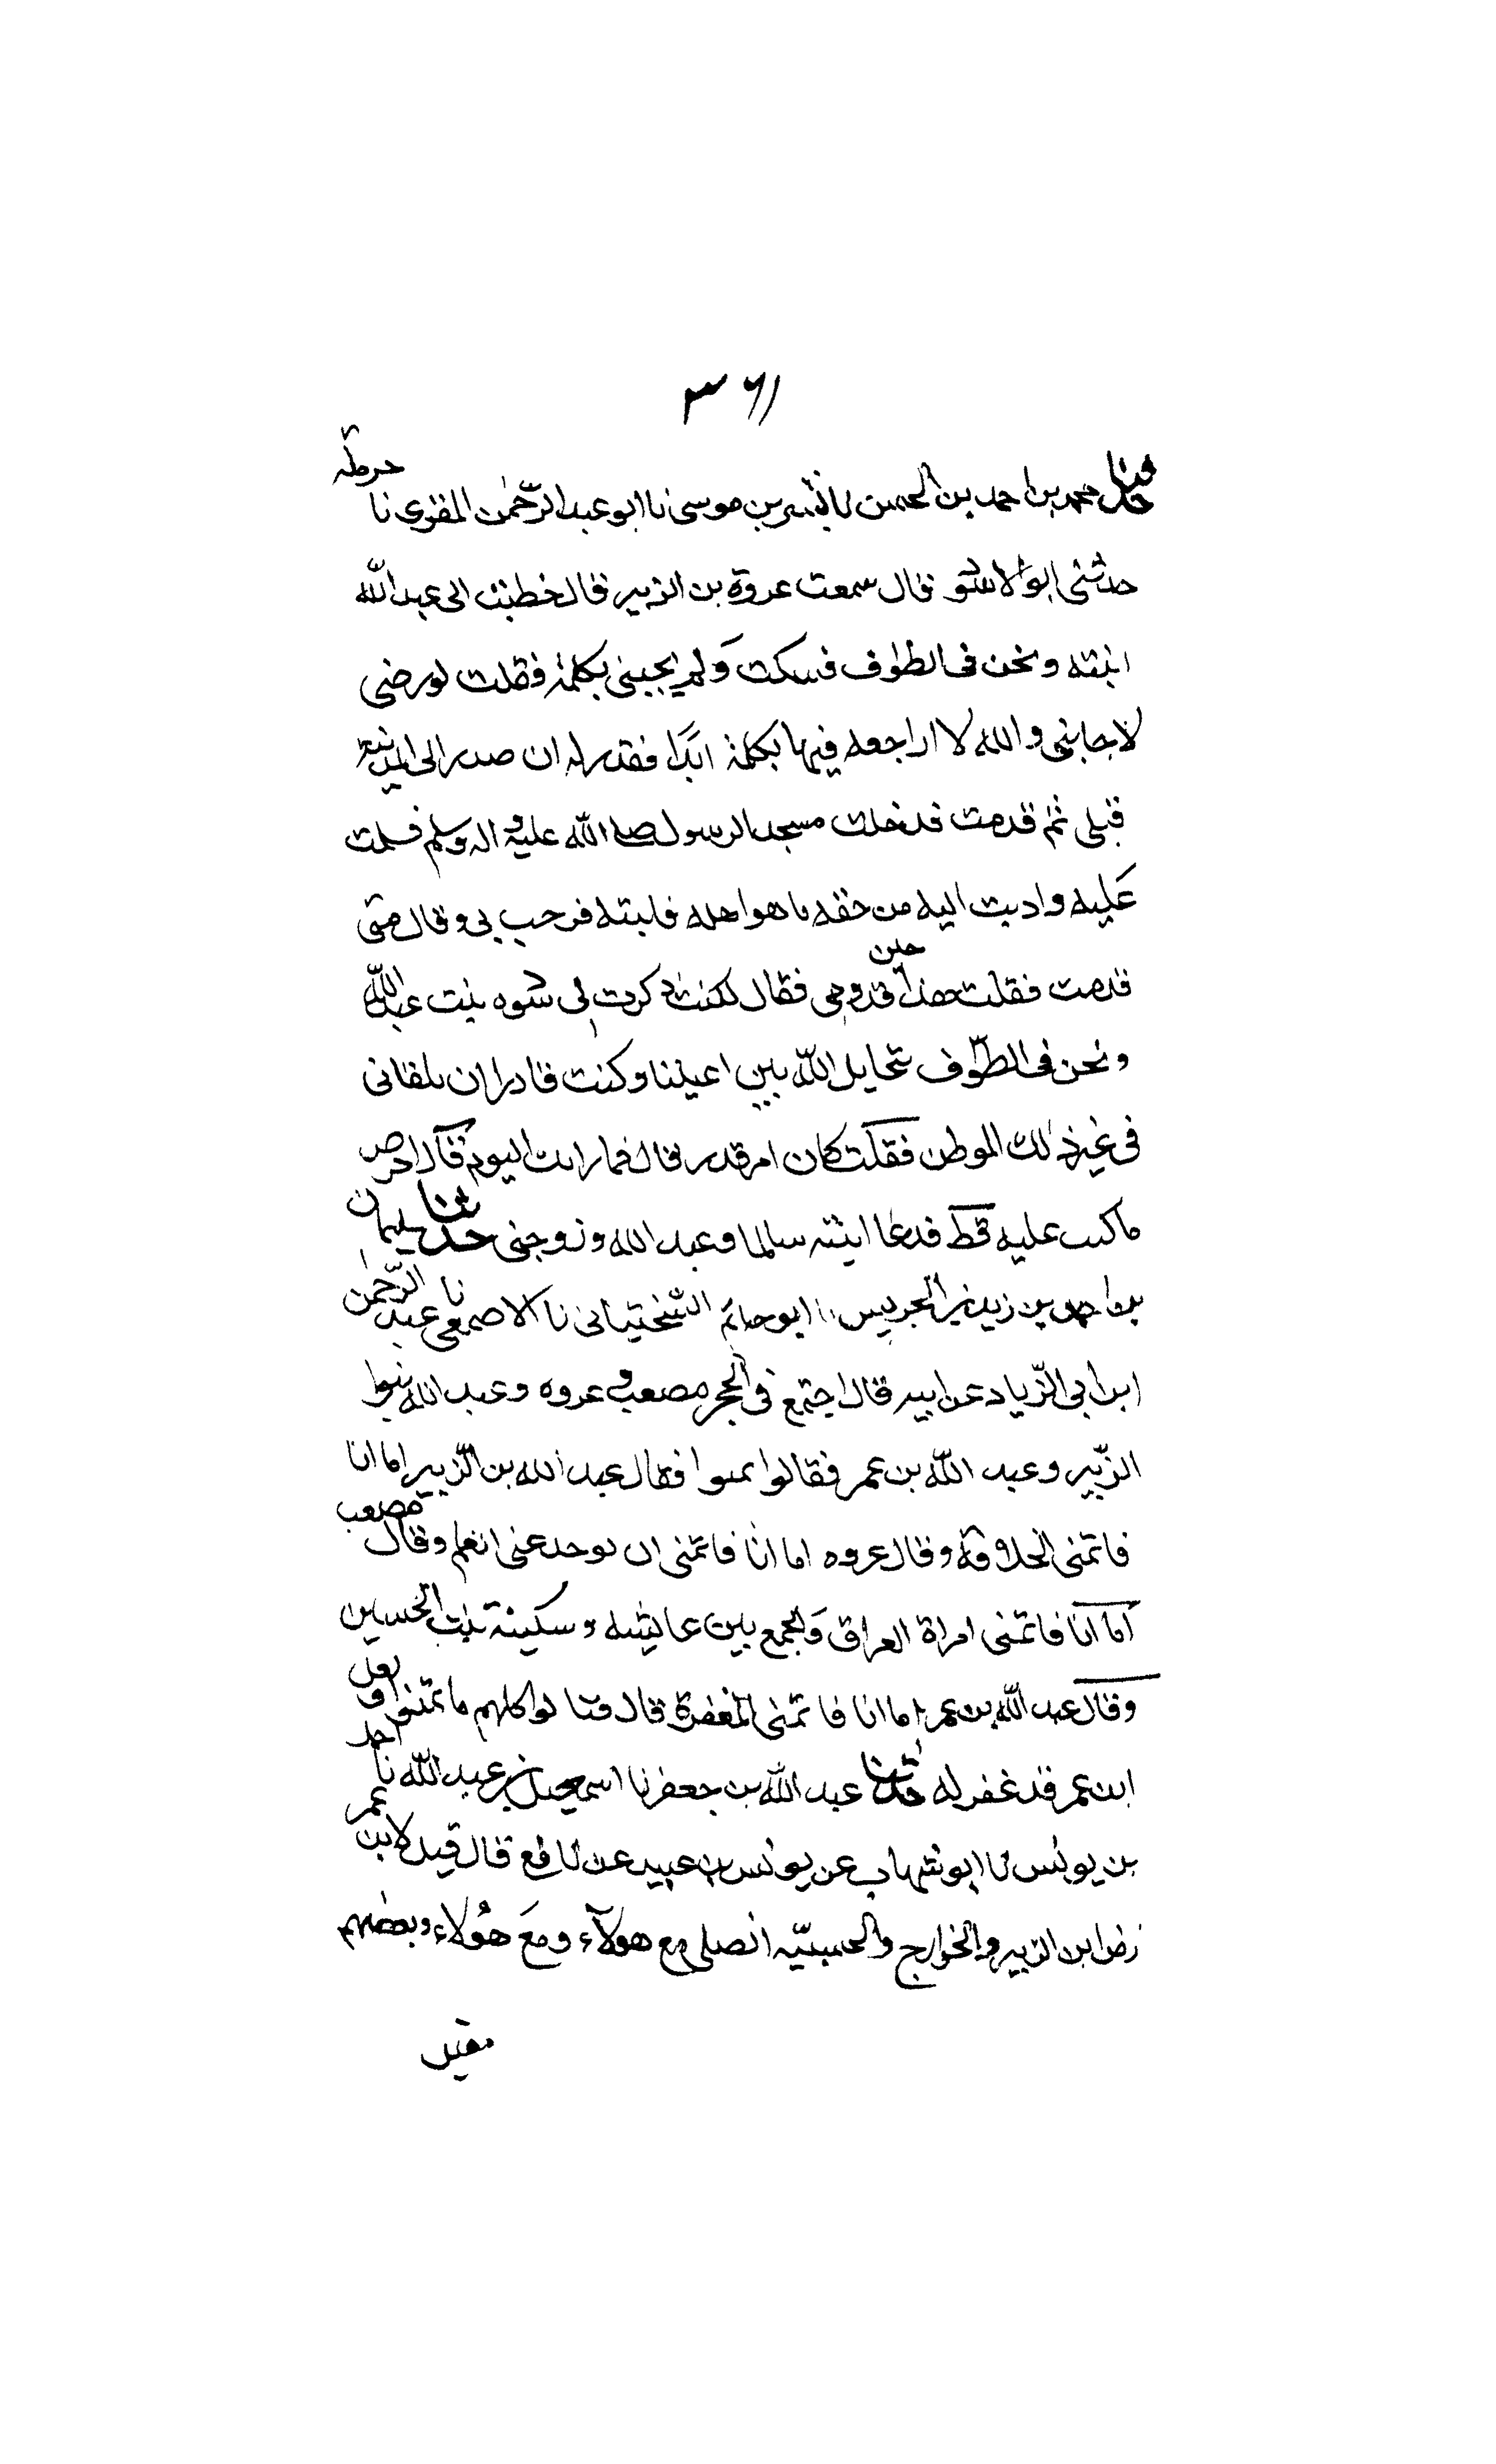 ٣٦١
حدثنا محمد بن احمد بن الحسن نا بشر بن موسى نا ابو عبد الرحمٰن المقرى نا حرملة
حدثنى ابو الاسود قال سمعت عروة بن الزبير قال خطبت الى عبد الله
ابنته ونحن فى الطواف فسكت ولم يجبنى بكلمة فقلت لو رضى
لاجابنى والله لا اراجعه فيها بكلمة ابدًا فقدر له ان صدر الى المدينة
قبلى ثم قدمت فدخلت مسجد الرسول صلى الله عليه و اله وسلم فسلمت
عليه واديت اليه من حقه ما هو اهله فاتيته فرحب بى وقال متى
قدمت فقلت هذا حين قدومى فقال اكنت ذكرت لى سوده بنت عبد الله
ونحن فى الطواف نتخايل الله بين اعيننا وكنت قادرا ان تلقانى
فى غير ذلك الموطن فقلت كان امر قدر قال فما رايك اليوم قال احرص
ما كنت عليه قط فدعا ابنته سالما وعبد الله وزوجنى حدثنا سليمان
بن احمد بن زيد بن الجريس نا ابو حاتم السختيانى نا الاصمعى نا عبد الرحمٰن
ابن ابى الزياد عن ابيه قال اجتمع فى الحجر مصعب و عروه وعبد الله بنوا
الزبير وعبد الله بن عمر فقالوا تمنوا فقال عبد الله بن الزبير اما انا
فاتمنى الخلافة وقال عروه اما انا فاتمنى ان يوخذ عنى العلم وقال مصعب
اما انا فاتمنى امراة العراق والجمع بين عايشه وسكينة بنت الحسين
وقال عبد الله بن عمر اما انا فاتمنى المغفرة قال فنالوا كلهم ما تمنوا و لعل
ابن عمر قد غفر له حدثنا عبد الله بن جعفر نا اسمعيل بن عبد الله نا احمد
بن يونس نا ابو شهاب عن يونس بن عبيد عن نافع قال قيل لابن عمر
زمن ابن الزبير والخوارج والخشبيّه اتصلى مع هولآء ومع هؤلاء وبعضهم
مقيل